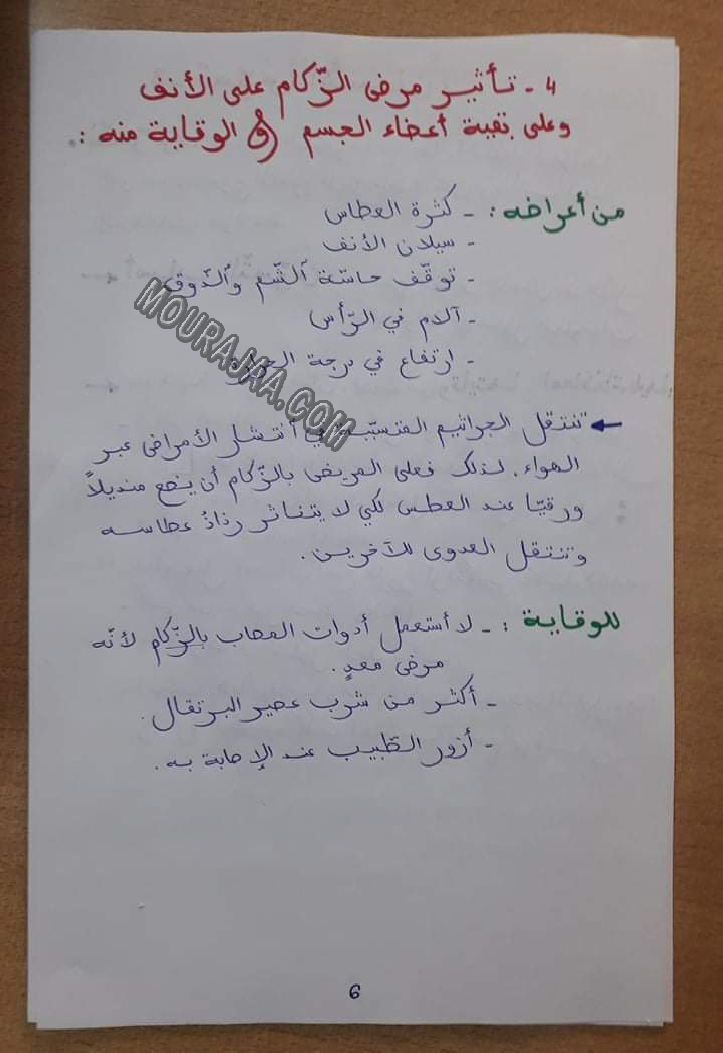 4 - تأثير مرض الزّكام على الأنف
وعلى بقية أعضاء الجسم و الوقاية منه :
من أعراضه : - كثرة العطاس
- سيلان الأنف
- توقّف حاسّة الشّم والذّوق
- آلام في الرّأس
- ارتفاع في درجة الحرارة
← تنتقل الجراثيم المتسبّبة في انتشار الأمراض عبر
الهواء. لذلك فعلى المريض بالزّكام أن يضع منديلاً
ورقيّا عند العطس لكي لا يتناثر رذاذ عطاسه
وتنتقل العدوى للآخرين.
للوقاية : - لا أستعمل أدوات المصاب بالزّكام لأنّه
مرض معدٍ.
- أكثر من شرب عصير البرتقال.
- أزور الطّبيب عند الإصابة به.
6
MOURAJAA.COM